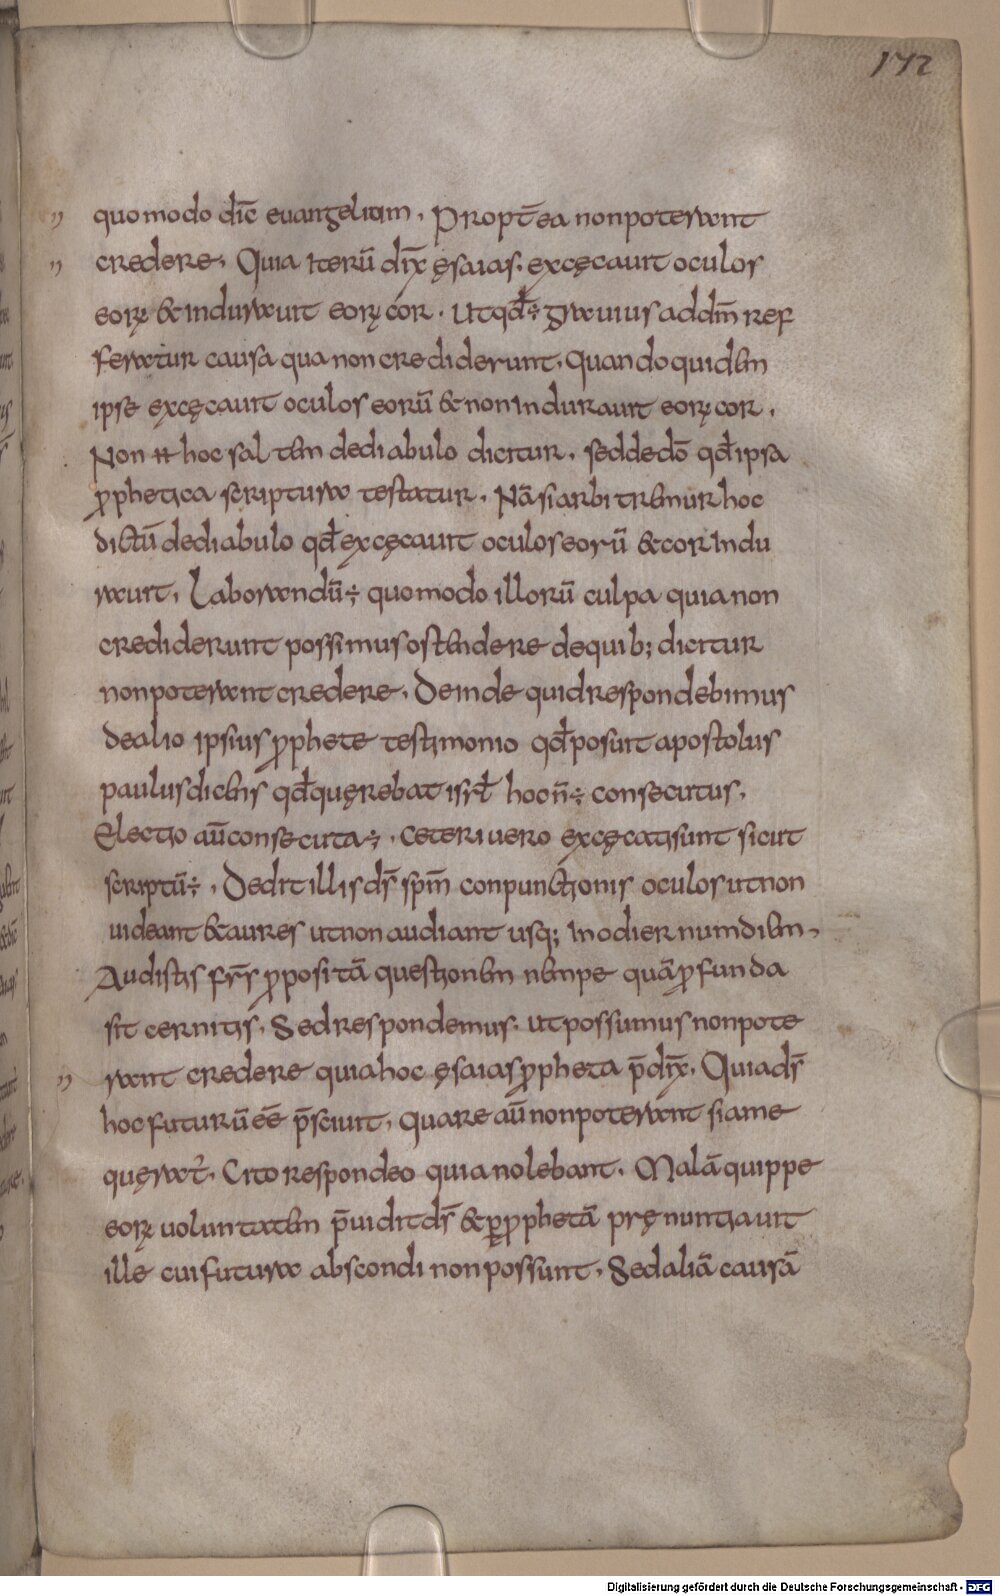 172
quomodo dic̄ euangelium. Propt̄ea non poterant
credere. Quia iterū dix̄ ęsaias. excęcauit oculos
eorꝝ & indurauit eorꝝ cor. ut qđ ÷ grauius ad dm̄ ref
feratur causa qua non crediderunt. Quandoquidem
ipse excęcauit oculos eorū & non indurauit eorꝝ cor.
Non hoc saltem de diabulo dicitur. sed de dō qđ ipsa
ꝓphetica scriptura testatur. Nā si arbitremur hoc
dictū de diabulo qđ excęcauit oculos eorū & cor indu
rauit. Laborandū ÷ quomodo illorū culpa quia non
crediderunt possimus ostendere de quib; dicitur
non poterant credere. Deinde quid respondebimus
de alio ipsius ꝓphete testimonio qđ posuit apostolus
paulus dicens qđ quęrebat isrł hoc n̄ ÷ consecutus.
Electio aū consecuta ÷. ceteri uero excęcati sunt sicut
scriptū ÷. Dedit illis ds̄ spm̄ conpunctionis oculos ut non
uideant & aures ut non audiant usq; in odiernum diem.
Audistis frs̄ ꝓpositā questionem nempe quā ꝓfunda
sit cernitis. Sed respondemus. ut possumus non pote
rant credere quia hoc ęsaias ꝓpheta p̄dix̄. Quia ds̄
hoc futurū eē p̄sciuit. Quare aū non poterant si a me
quęrat̄. Cito respondeo quia nolebant. Malā quippe
eorꝝ uoluntatem p̄uidit ds̄ & ꝑ ꝓphetā pręnuntiauit
ille cui futura abscondi non possunt. Sed aliā causā
Digitalisierung gefördert durch die Deutsche Forschungsgemeinschaft - DFG